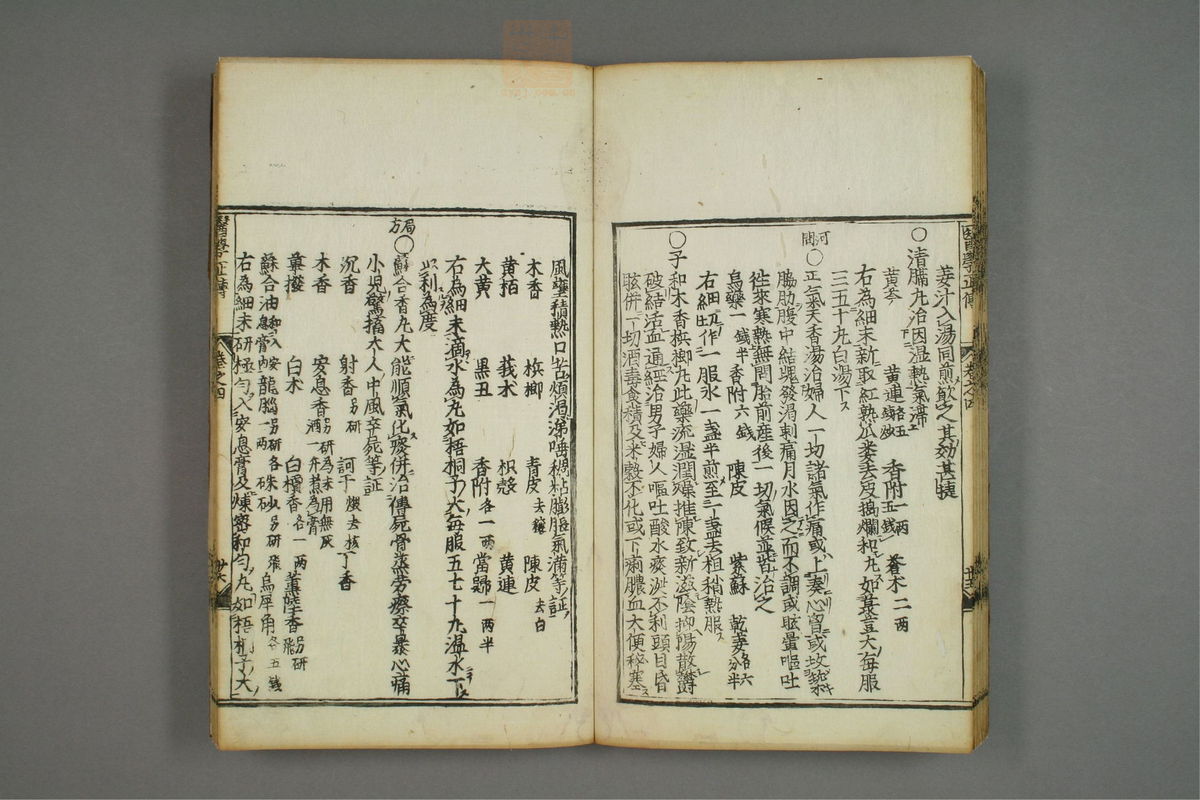 醫學正傳 卷之四
姜汁入湯同煎飲之其効甚捷
○清膈丸治因湿熱氣滯
黃芩 黃連各五錢炒 香附一兩五錢 蒼木二兩
右為細末新取紅熟瓜蔞去皮搗爛和丸如菉豆大每服
三五十丸白湯下
河間
○正氣天香湯治婦人一切諸氣作痛或上湊心胷或攻築
脇肋腹中結塊發渴刺痛月水因之而不調或眩暈嘔吐
徃來寒熱無問胎前産後一切氣候並皆治之
烏藥一錢半 香附六錢 陳皮 紫蘇 乾姜各六分半
右細切作一服水一盞半煎至一盞去柤稍熱服
○子和木香梹榔丸此藥流湿潤燥推陳致新滋陰抑陽散鬱
破結活血通經治男子婦人嘔吐酸水痰涎不利頭目昏
眩併一切酒毒食積及米糓不化或下痢膿血大便秘塞
風壅積熱口苦煩渴涕唾稠粘膨脹氣滿等証
木香 梹榔 青皮去穰 陳皮去白
黃栢 莪朮 枳殻 黃連
大黃 黒丑 香附各一兩 當歸一兩半
右為細末滴水為丸如梧桐子大每服五七十丸温水下
以利為度
局方
○蘇合香丸大能順氣化痰併治傳屍骨蒸勞瘵卒暴心痛
小児驚搐大人中風卒死等証
沉香 射香另研 訶子煨去核 丁香
木香 安息香另研為末用無灰酒一升煮為膏
蓽撥 白朮 白檀香各一兩 薰陸香另研
蘇合油和入安息膏內 龍腦另研各一兩 硃砂另研飛 烏犀角各五錢
右為細末研極勻入安息膏及煉密和勻丸如梧桐子大
醫學正傳 卷之四